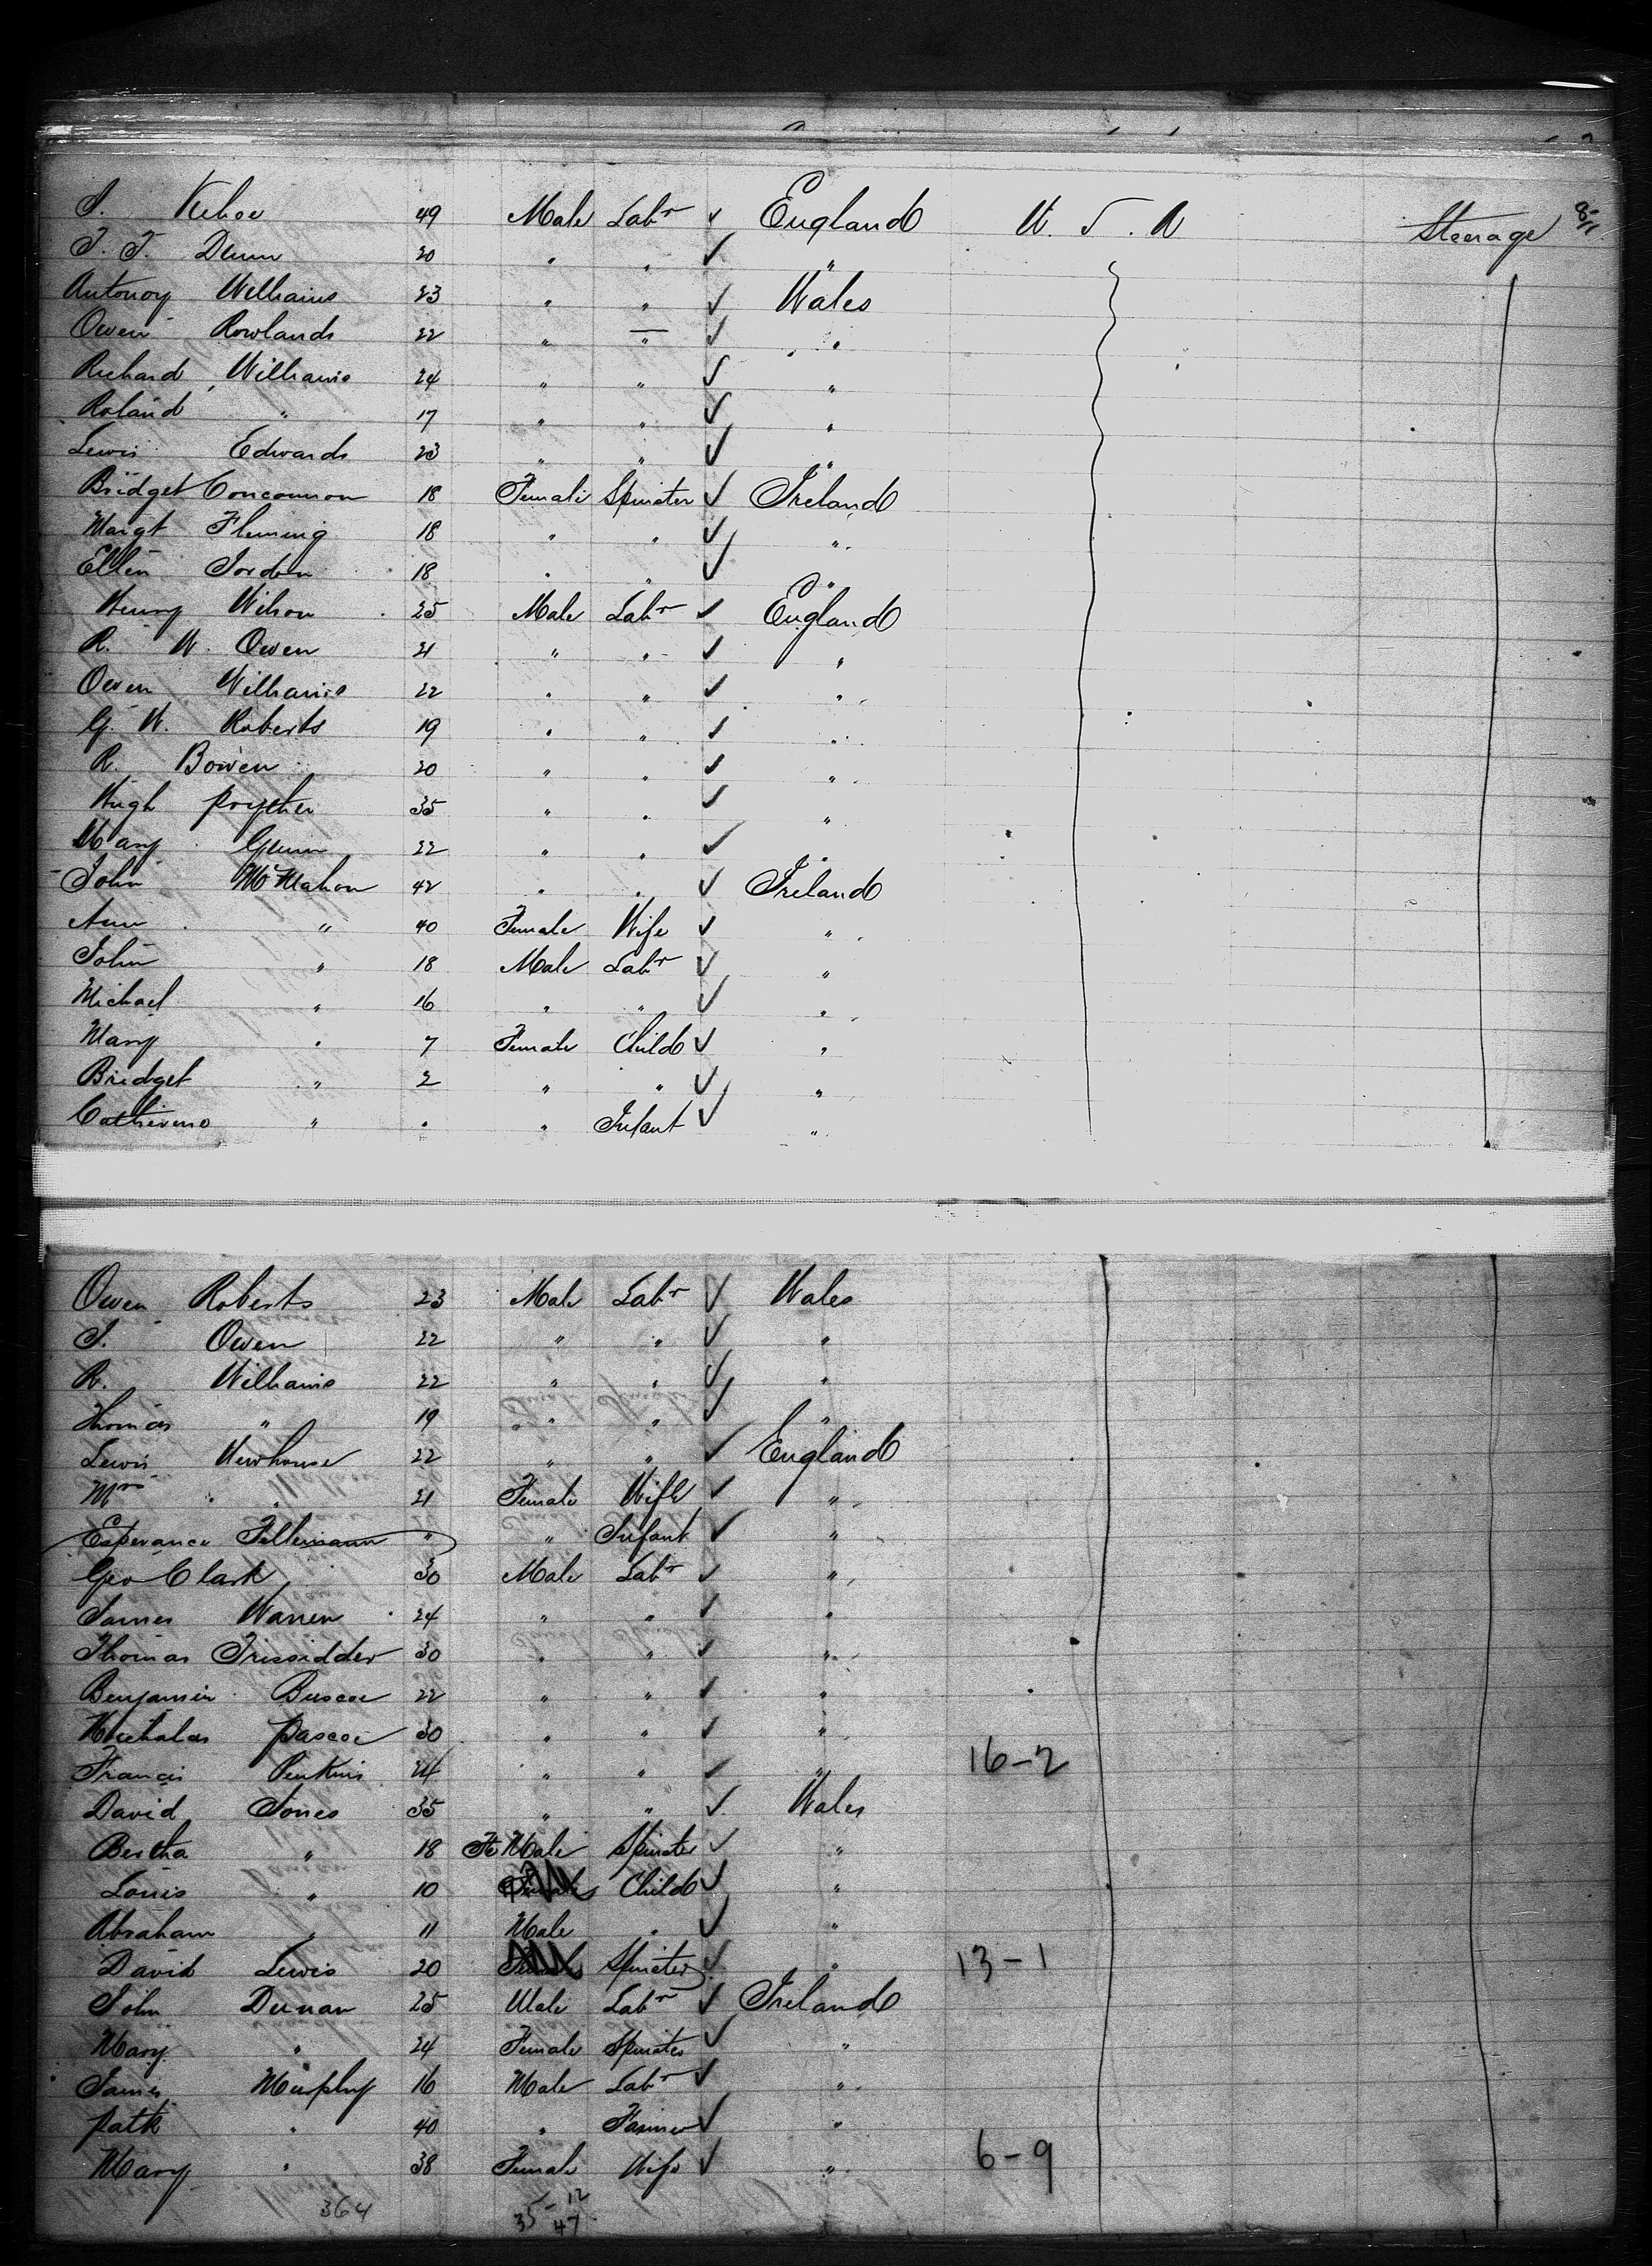 J. Kehoe 49 Male Labr ✓ England U. S. A Steerage 8/11
T. J. Dunn 20 " " ✓ "
Antonoy Williams 23 " " ✓ Wales
Owen Rowlands 22 " " ✓ "
Richard Williams 24 " " ✓ "
Roland " 17 " " ✓ "
Lewis Edwards 23 " " ✓ "
Bridget Concannon 18 Female Spinster ✓ Ireland
Margt Fleming 18 " " ✓ "
Ellen Jordan 18 " " ✓ "
Henry Wilson 25 Male Labr ✓ England
R. W. Owen 21 " " ✓ "
Owen Williams 22 " " ✓ "
G. W. Roberts 19 " " ✓ "
R. Bowen 20 " " ✓ "
Hugh 35 " " ✓ "
Mary Gunn 22 " " ✓ "
John McMahon 42 " " ✓ Ireland
Ann " 40 Female Wife ✓ "
John " 18 Male Labr ✓ "
Michael " 16 " " ✓ "
Mary " 7 Female Child ✓ "
Bridget " 2 " " ✓ "
Catherine " " " Infant ✓ "
Owen Roberts 23 Male Labr ✓ Wales
J. Owen 22 " " ✓ "
R. Williams 22 " " ✓ "
Thomas " 19 " " ✓ "
Lewis Newhouse 22 " " ✓ England
Mrs " 21 Female Wife ✓ "
Esperance Fellemann " " Infant ✓ "
Geo Clark 30 Male Labr ✓ "
James Warren 24 " " ✓ "
Thomas Trissidder 30 " " ✓ "
Benjamin Buscoe 22 " " ✓ "
Nicholas Pascoe 30 " " ✓ "
Francis Penkins 24 " " ✓ " 16-2
David Jones 35 " " ✓ Wales
Bertha " 18 Fe Male Spinster ✓ "
Louis " 10 Child ✓ "
Abraham " 11 Male " ✓ "
David Lewis 20 Spinster ✓ " 13-1
John Dunan 25 Male Labr ✓ Ireland
Mary " 24 Female Spinster ✓ "
James Murphy 16 Male Labr ✓ "
Patk " 40 " Farmer ✓ "
Mary " 38 Female Wife ✓ " 6-9
364 35-12 47